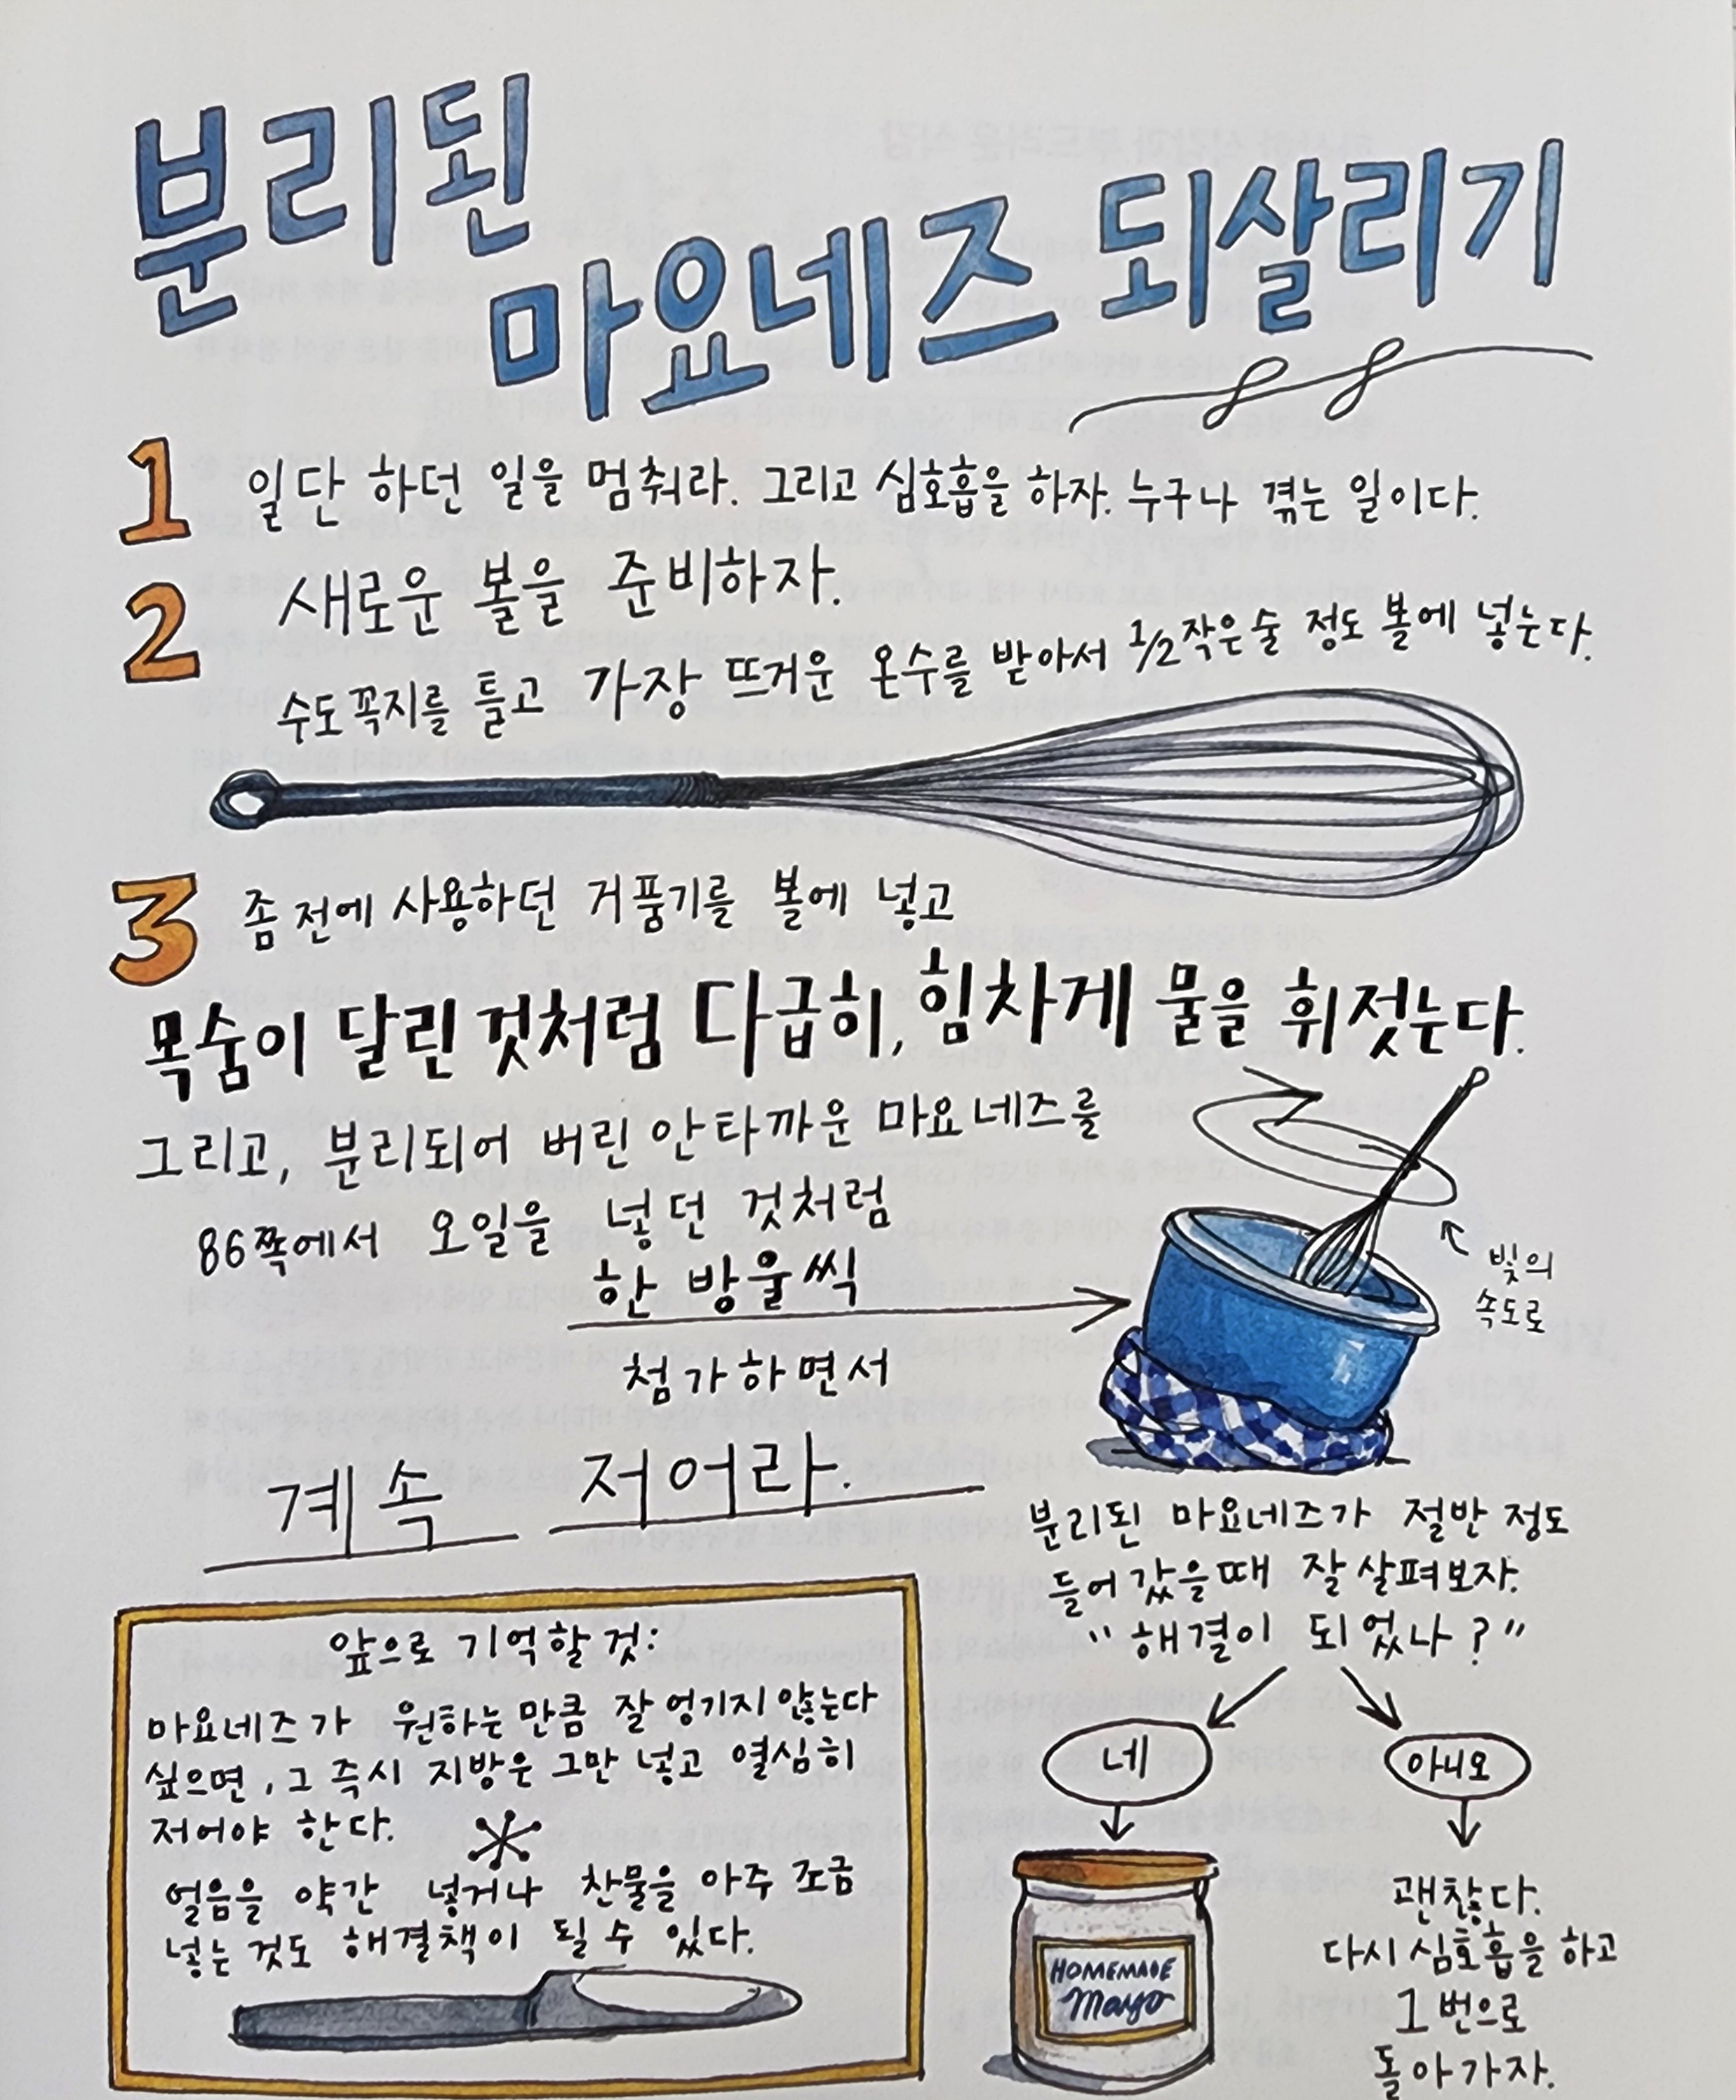 분리된
마요네즈 되살리기
1 일단 하던 일을 멈춰라. 그리고 심호흡을 하자. 누구나 겪는 일이다.
2 새로운 볼을 준비하자.
수도꼭지를 틀고 가장 뜨거운 온수를 받아서 1/2작은술 정도 볼에 넣는다.
3 좀 전에 사용하던 거품기를 볼에 넣고
목숨이 달린 것처럼 다급히, 힘차게 물을 휘젓는다.
그리고, 분리되어 버린 안타까운 마요네즈를
86쪽에서 오일을 넣던 것처럼
한 방울씩
첨가하면서
계속 저어라.
빛의
속도로
분리된 마요네즈가 절반 정도
들어갔을때 잘 살펴보자.
"해결이 되었나?"
네
아니오
HOMEMADE
Mayo
괜찮다.
다시 심호흡을 하고
그 번으로
돌아가자.
앞으로 기억할 것:
마요네즈가 원하는 만큼 잘 엉기지 않는다
싶으면, 그 즉시 지방은 그만 넣고 열심히
저어야 한다.
얼음을 약간 넣거나 찬물을 아주 조금
넣는 것도 해결책이 될 수 있다.